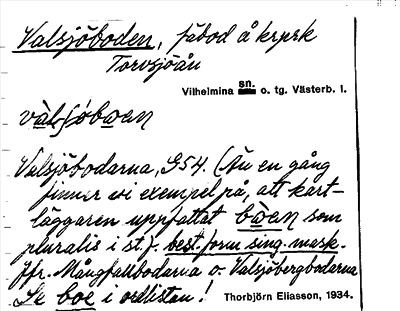 Valsjöboden, fäbod å krprk
Torvsjöån
Vilhelmina sn. o. tg. Västerb. l.
Valsjöbodarna, G54. (Än en gång
finner vi exempel på, att kart-
läggaren uppfattat bωan som
pluralis i st. f. best. form sing. mask.
Jfr. Mångfallbodarna o. Valsjöbergbodarna
Se boe i ordlistan!
Thorbjörn Eliasson, 1934.